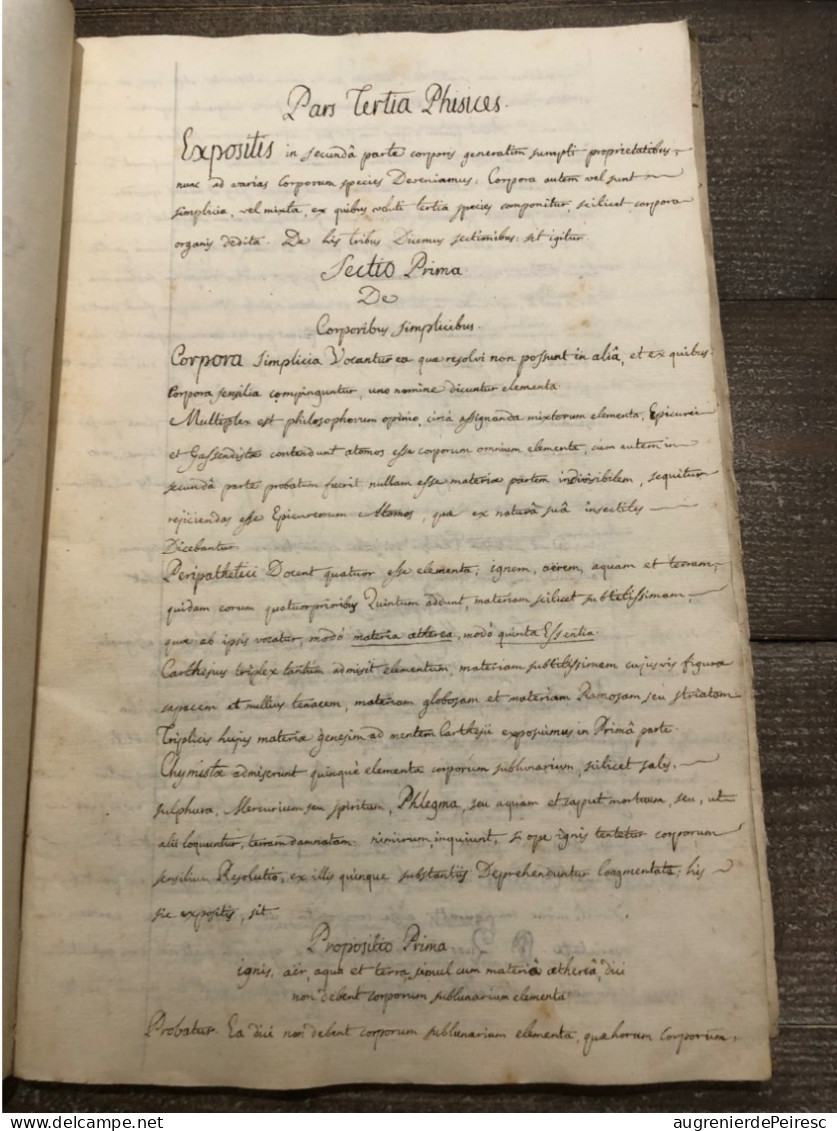 Pars Tertia Phisices.
Expositis in secundâ parte corporis generatim sumpti proprietatibus,
nunc ad varias Corporum species Deveniamus. Corpora autem vel sunt
simplicia, vel mixta, ex quibus veluti tertia species componitur, scilicet corpora
organis dedita. De his tribus Dicemus sectionibus. sit igitur.
Sectio Prima
De
Corporibus simplicibus.
Corpora simplicia Vocantur ea quæ resolvi non possunt in aliâ, et ex quibus
Corpora sensilia compinguntur, uno nomine dicuntur elementa.
Multiplex est philosophorum opinio, circà assignanda mixtorum elementa, Epicurei
et Gassendistæ contendunt atomos esse corporum omnium elementa, cum autem in
secundâ parte probatum fuerit nullam esse materiæ partem indivisibilem, sequitur
rejiciendas esse Epicureorum Atomos, quæ ex naturâ suâ insectiles
Dicebantur
Peripathetici Docent quatuor esse elementa; ignem, aërem, aquam et terram,
quidam eorum quatuor prioribus Quintum addunt, materiam scilicet subtilissimam,
quæ ab ipsis vocatur, modò materia ætherea, modò quinta Essentia.
Carthesius triplex tantum admisit elementum, materiam subtilissimam cujusvis figuræ
capacem et nullius tenacem, materiam globosam et materiam Ramosam seu striatam
Triplicis hujus materiæ genesim ad mentem Carthesii exposuimus in Primâ parte.
Chymistæ admiserunt quinquè elementa corporum sublunarium, scilicet salis,
sulphura, Mercurium seu spiritum, Phlegma, seu aquam et caput mortuum, seu, ut
alii loquuntur, terram damnatam. nimirum, inquiunt, si ope ignis tentetur corporum
sensilium Resolutio, ex illis quinque substantiis Deprehenduntur Coagmentata; his
sic expositis, sit
Propositio Prima
ignis, aër, aqua et terra, simul cum materiâ æthereâ, dici
non debent corporum sublunarium elementa
Probatur. Ea dici non debent corporum sublunarium elementa, quæ horum corporum,
augrenierdePeiresc